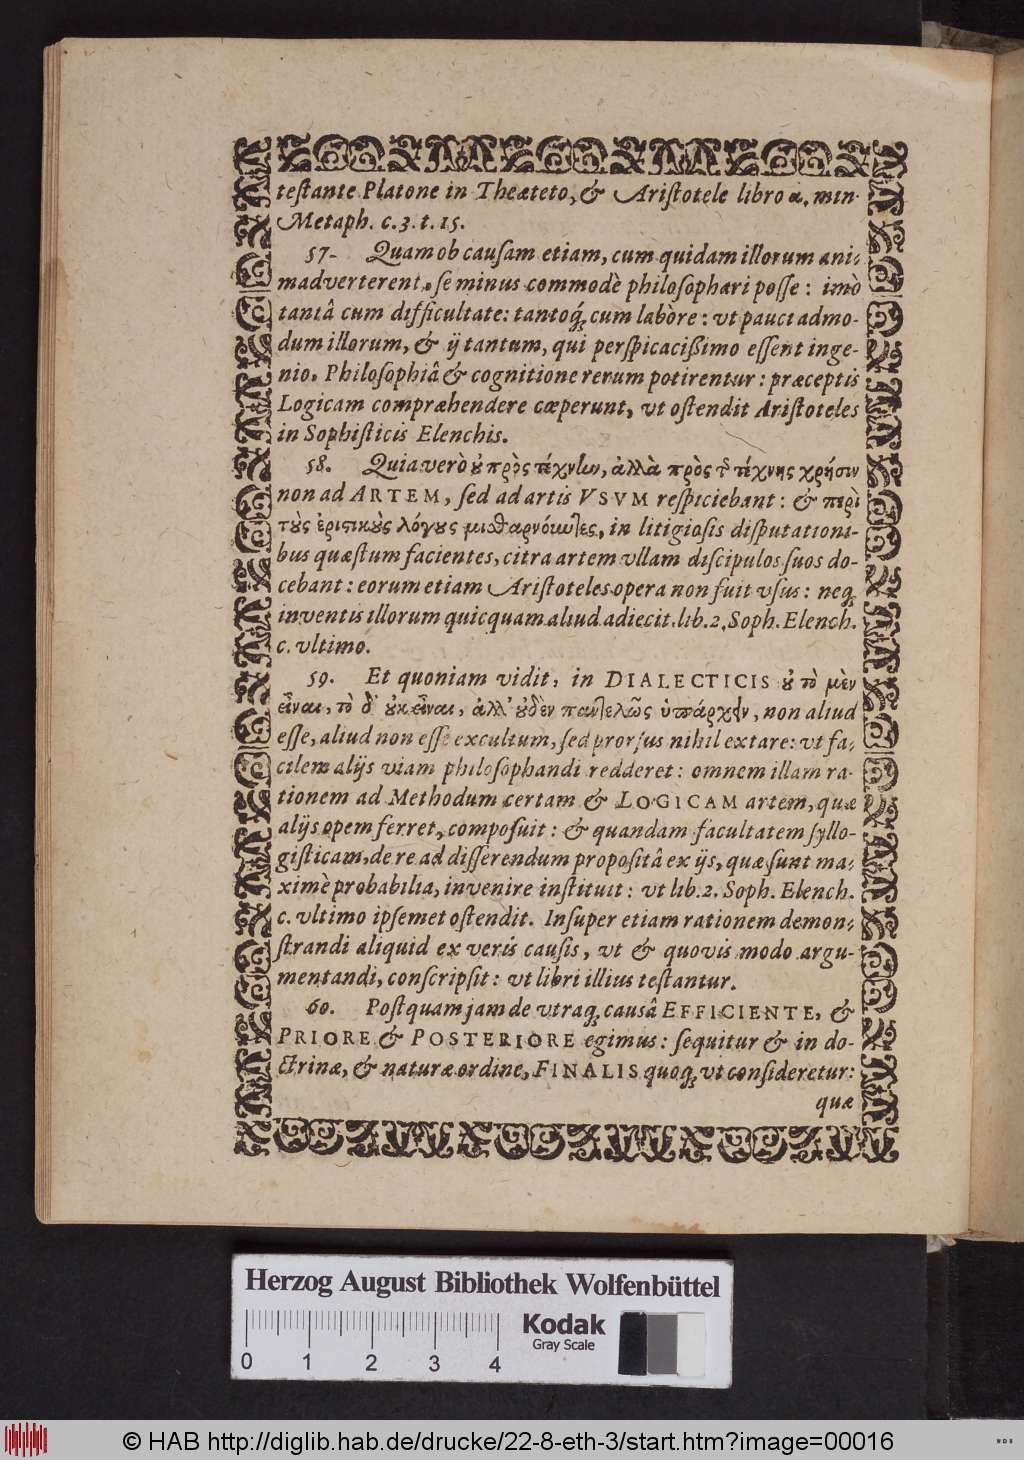 teſtante Platone in Theæteto, & Ariſtotele libro α. min.
Metaph. c. 3. t. 15.
57. Quamob cauſam etiam, cum quidam illorum ani-
madverterent, ſe minus commodè philoſophari poſſe: imò
tantâ cum difficultate: tantoq́; cum labòre: vt pauci admo-
dum illorum, & ij tantum, qui perſpicacißimo eſſent inge-
nio, Philoſophiâ & cognitione rerum potirentur: præceptis
Logicam compræhendere cœperunt, vt oſtendit Ariſtoteles
in Sophiſticis Elenchis.
58. Quia verò ȣ̓ πρὸς τέχνην, ἀλλὰ πρὸς τ̃ τέχνης χρῆσιν
non ad ARTEM, ſed ad artis VSVM reſpiciebant: & περὶ
τȣ̀ς ἐριστικȣ̀ς λόγȣς μισθαρνȣ́ντες, in litigioſis diſputationi-
bus quæſtum facientes, citra artem vllam diſcipulos ſuos do-
cebant: eorum etiam Ariſtoteles opera non fuit vſus: neq́;
inventis illorum quicquam aliud adiecit. lib. 2. Soph. Elench.
c. vltimo.
59. Et quoniam vidit, in DIALECTICIS ȣ̓ τὸ μὲν
εἶναι, τὸ δ' ȣ̓κ εἶναι, ἀλλ' ȣ̓δὲν παντελῶς ὑπάρχειν, non aliud
eſſe, aliud non eſſe excultum, ſed prorſus nihil extare: vt fa-
cilem alijs viam philoſophandi redderet: omnem illam ra-
tionem ad Methodum certam & LOGICAM artem, quæ
alijs opem ferret, compoſuit: & quandam facultatem ſyllo-
giſticam, de re ad diſſerendum propoſitâ ex ijs, quæ ſunt ma-
ximè probabilia, invenire inſtituit: vt lib. 2. Soph. Elench.
c. vltimo ipſemet oſtendit. Inſuper etiam rationem demon-
ſtrandi aliquid ex veris cauſis, vt & quovis modo argu-
mentandi, conſcripſit: vt libri illius teſtantur.
60. Poſtquam jam de vtraq́; cauſâ EFFICIENTE, &
PRIORE & POSTERIORE egimus: ſequitur & in do-
ctrinæ, & naturæ ordine, FINALIS quoq́; vt conſideretur:
quæ
Herzog August Bibliothek Wolfenbüttel
Kodak
Gray Scale
0 1 2 3 4
© HAB http://diglib.hab.de/drucke/22-8-eth-3/start.htm?image=00016